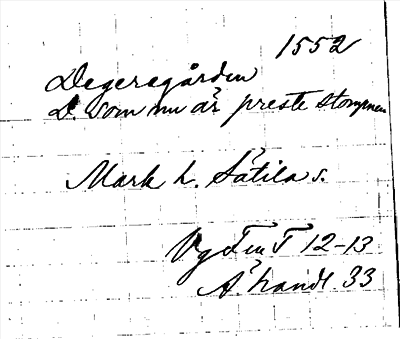 1552
Degeregården
D. som nu är preste stompnen
Mark h. Sätila s.
Vg FmT 12-13
Ä. handl. 33